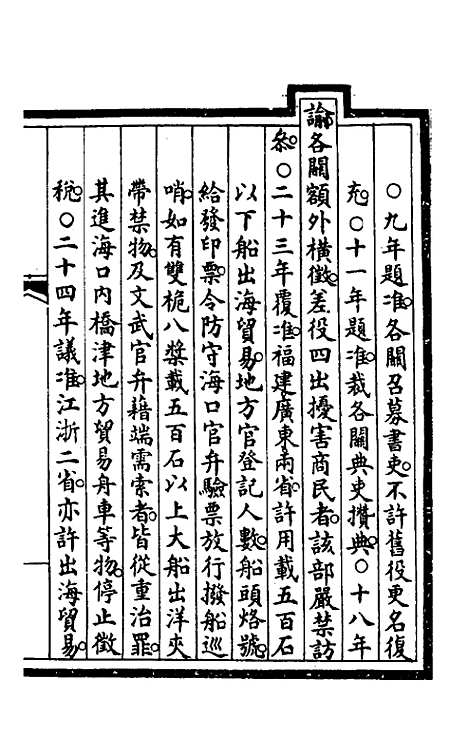 ○九年題准。各關召募書吏。不許舊役更名復
充。○十一年題准。裁各關典史攢典。○十八年
諭各關額外橫徵。差役四出擾害商民者。該部嚴禁訪
叅。○二十三年覆准。福建廣東兩省。許用載五百石
以下船出海貿易。地方官登記人數。船頭烙號。
給發印票。令防守海口官弁。驗票放行。撥船巡
哨。如有雙桅八槳。載五百石以上大船出洋。夾
帶禁物。及文武官弁藉端需索者。皆從重治罪。
其進海口內橋津地方貿易舟車等物。停止徵
稅。○二十四年議准。江浙二省。亦許出海貿易。